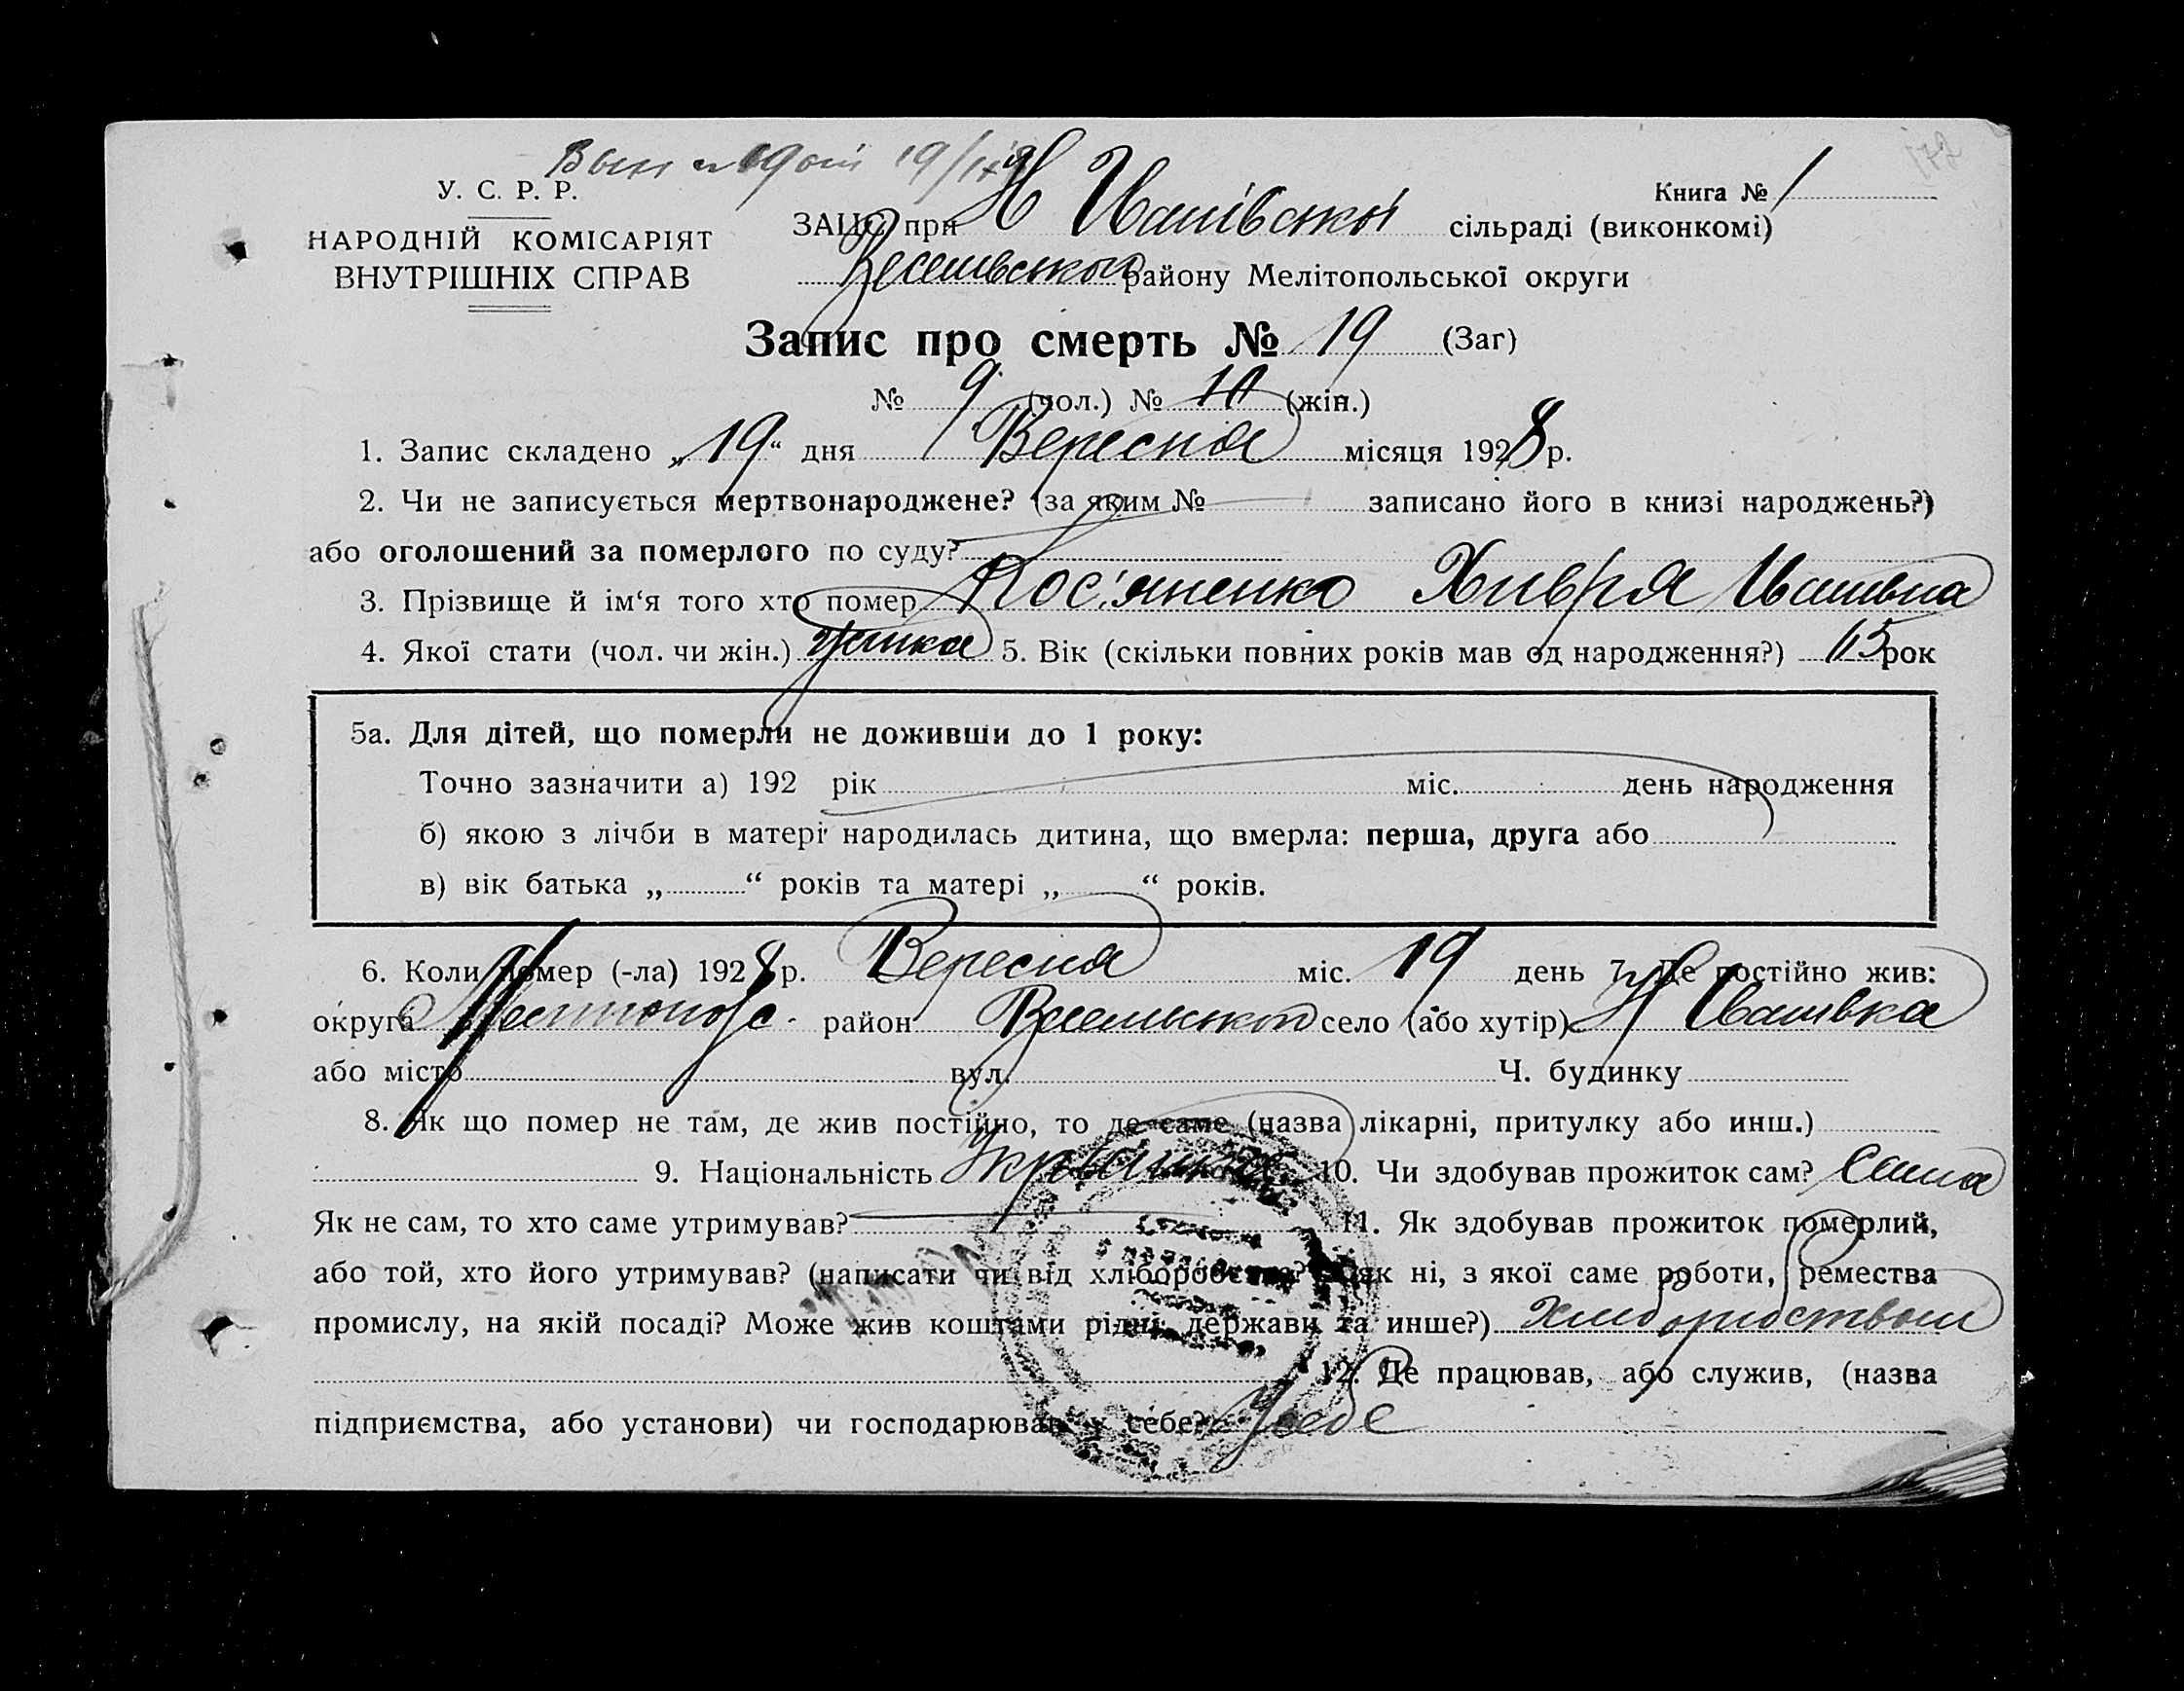 172
У. С. Р. Р.
Книга № 1
НАРОДНІЙ КОМІСАРІЯТ
ВНУТРІШНІХ СПРАВ
ЗАЦС при Н Іванівської сільраді (виконкомі)
Веселівського району Мелітопольської округи
Запис про смерть № 19 (Заг)
№ 9 (чол.) № 10 (жін.)
1. Запис складено „19“ дня Вересня місяця 1928 р.
2. Чи не записується мертвонароджене? (за яким № записано його в книзі народжень?)
або оголошений за померлого по суду?
3. Прізвище й ім‘я того хто помер Кос'яненко Хивря Іванівна
4. Якої стати (чол. чи жін.) жінка 5. Вік (скільки повних років мав од народження?) рок
5а. Для дітей, що померли не доживши до 1 року:
Точно зазначити а) 192 рік міс. день народження
б) якою з лічби в матері народилась дитина, що вмерла: перша, друга або
в) вік батька „ “ років та матері „ “ років.
6. Коли помер (-ла) 1928 р. Вересня міс. 19 день 7. Де постійно жив:
округа Мелітопольс. район Веселівського село (або хутір) Н Іванівка
або місто вул. Ч. будинку
8. Як що помер не там, де жив постійно, то де саме (назва лікарні, притулку або инш.)
9. Національність Українка 10. Чи здобував прожиток сам? Сама
Як не сам, то хто саме утримував? 11. Як здобував прожиток померлий,
або той, хто його утримував? (написати чи від хліборобства? Як ні, з якої саме роботи, ремества
промислу, на якій посаді? Може жив коштами рідні, держави та инше?) Хліборобством
12. Де працював, або служив, (назва
підприємства, або установи) чи господарював у себе? У себе